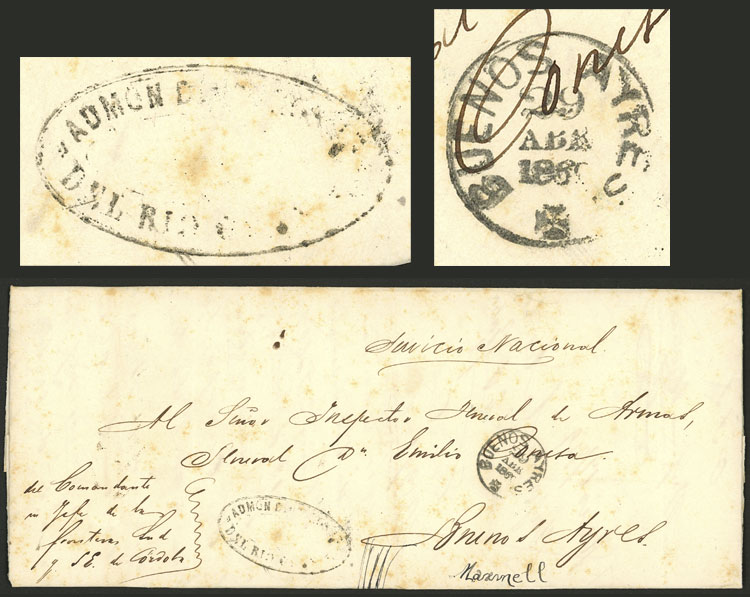 ADMON
DEL RIO
Cones
BUENOS AYRES
29
ABR
186
Servicio Nacional.
Al Señor Inspector General de Armas,
General Dn Emilio Conesa.
BUENOS AYRES
29
ABR
186
del Comandante
en Jefe de las
fronteras Sud
y S.E. de Córdoba
ADMON
DEL RIO
Buenos Ayres.
Maxwell